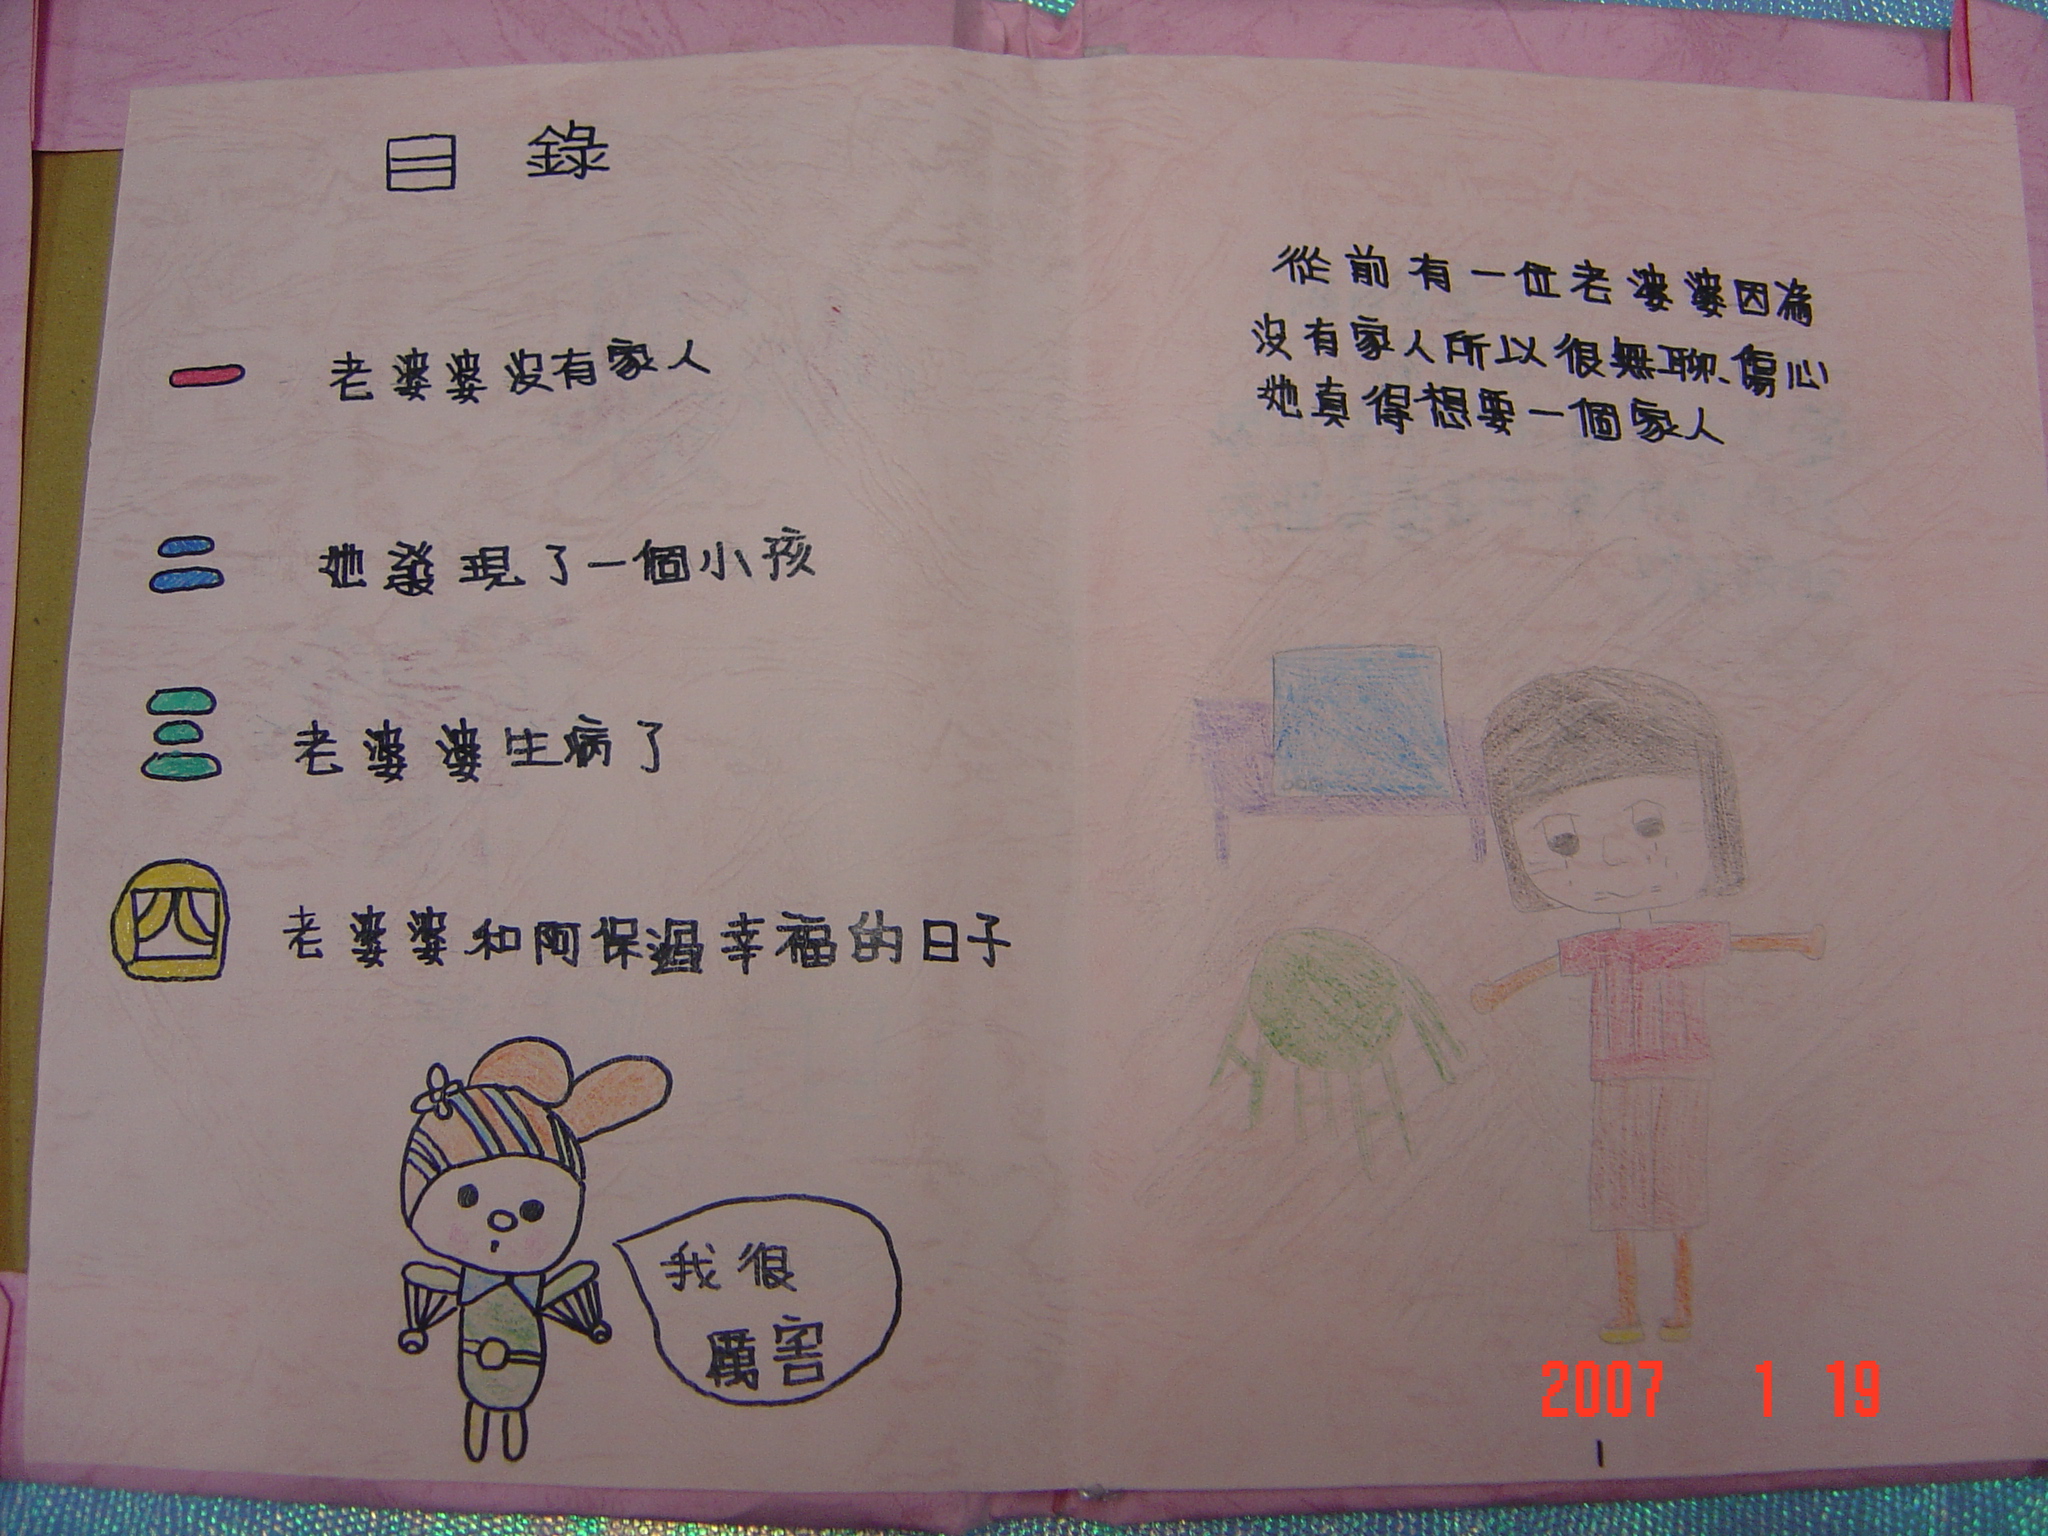 目 錄
一 老婆婆沒有家人
二 她發現了一個小孩
三 老婆婆生病了
四 老婆婆和阿保過幸福的日子
我很
厲害
從前有一位老婆婆因為
沒有家人所以很無聊、傷心
她真得想要一個家人
2007 1 19
1